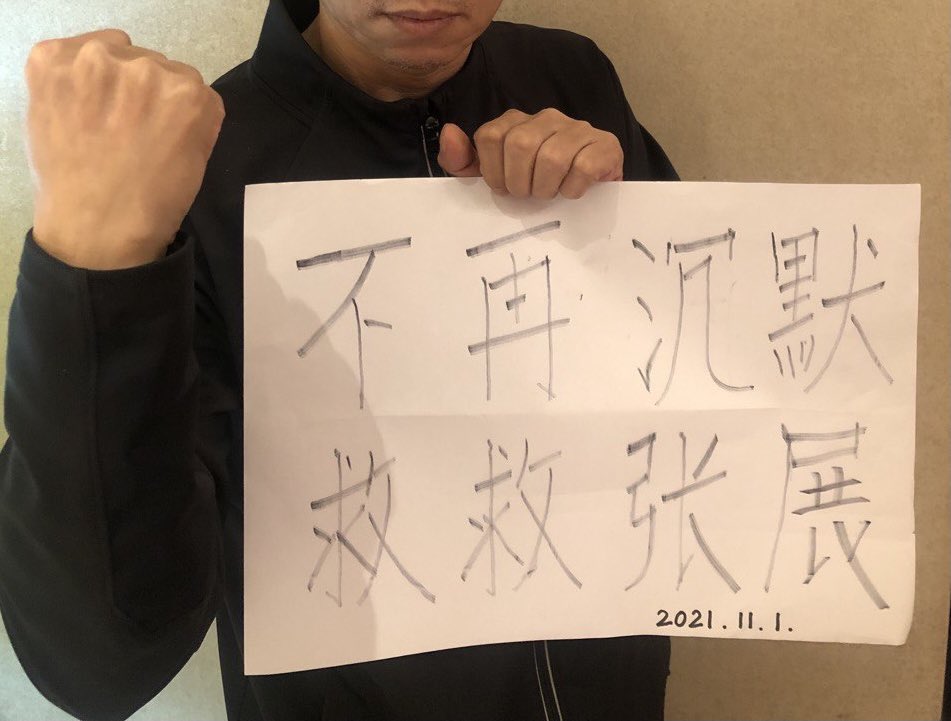 不再沉默
救救张展
2021.11.1.